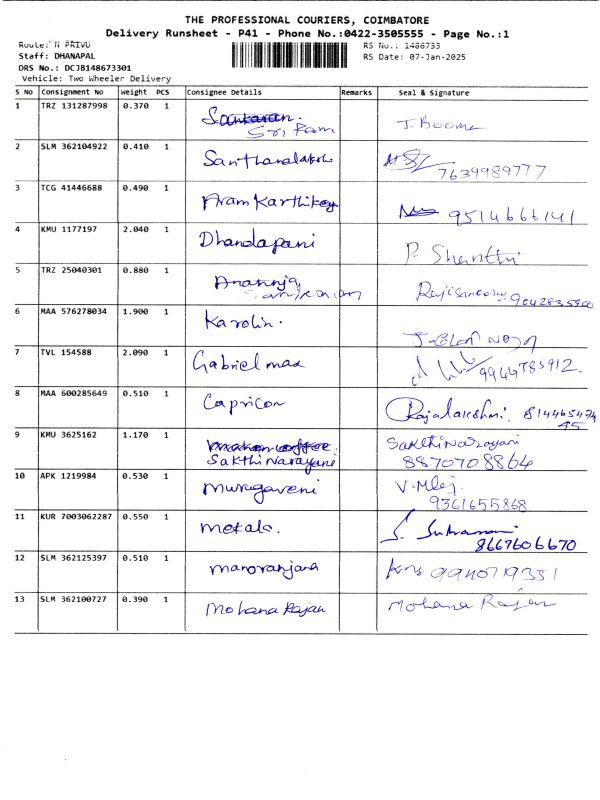 THE PROFESSIONAL COURIERS, COIMBATORE
Delivery Runsheet - P41 - Phone No.:0422-3505555 - Page No.:1
Route: N PRIVU
RS No.: 1486733
Staff: DHANAPAL
RS Date: 07-Jan-2025
DRS No.: DCJB148673301
Vehicle: Two Wheeler Delivery
S No Consignment No Weight PCS Consignee Details Remarks Seal & Signature
1 TRZ 131287998 0.370 1 Sankaran. J. Booma
Sri Ram
2 SLM 362104922 0.410 1 Santhanalakshi
7639989777
3 TCG 41446688 0.490 1 Aram Karthikey 9514666141
4 KMU 1177197 2.040 1 Dhandapani P. Shanthi
5 TRZ 25040301 0.880 1
6 MAA 576278034 1.900 1 Karolin.
7 TVL 154588 2.090 1 Gabriel max 9944785912.
8 MAA 600285649 0.510 1 Capricon Rajalakshmi. 814465474
45
9 KMU 3625162 1.170 1 SakthiNarayani
SakthiNarayane 8870708864
10 APK 1219984 0.530 1 murugaveni V.
9361655868
11 KUR 7003062287 0.550 1 mekala. S.
8667606670
12 SLM 362125397 0.510 1 manoranjana 9940719351
13 SLM 362100727 0.390 1 Mohana Rajan Mohana Rajan